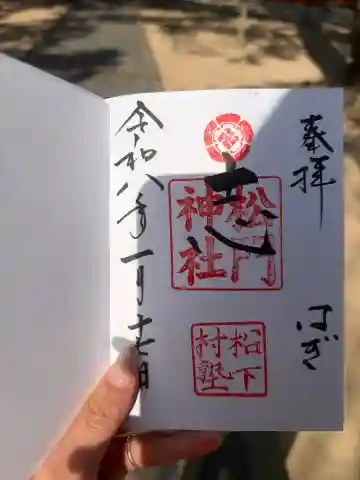 奉拝
はぎ
志
松門
神社
松下
村塾
令和八年一月十一日